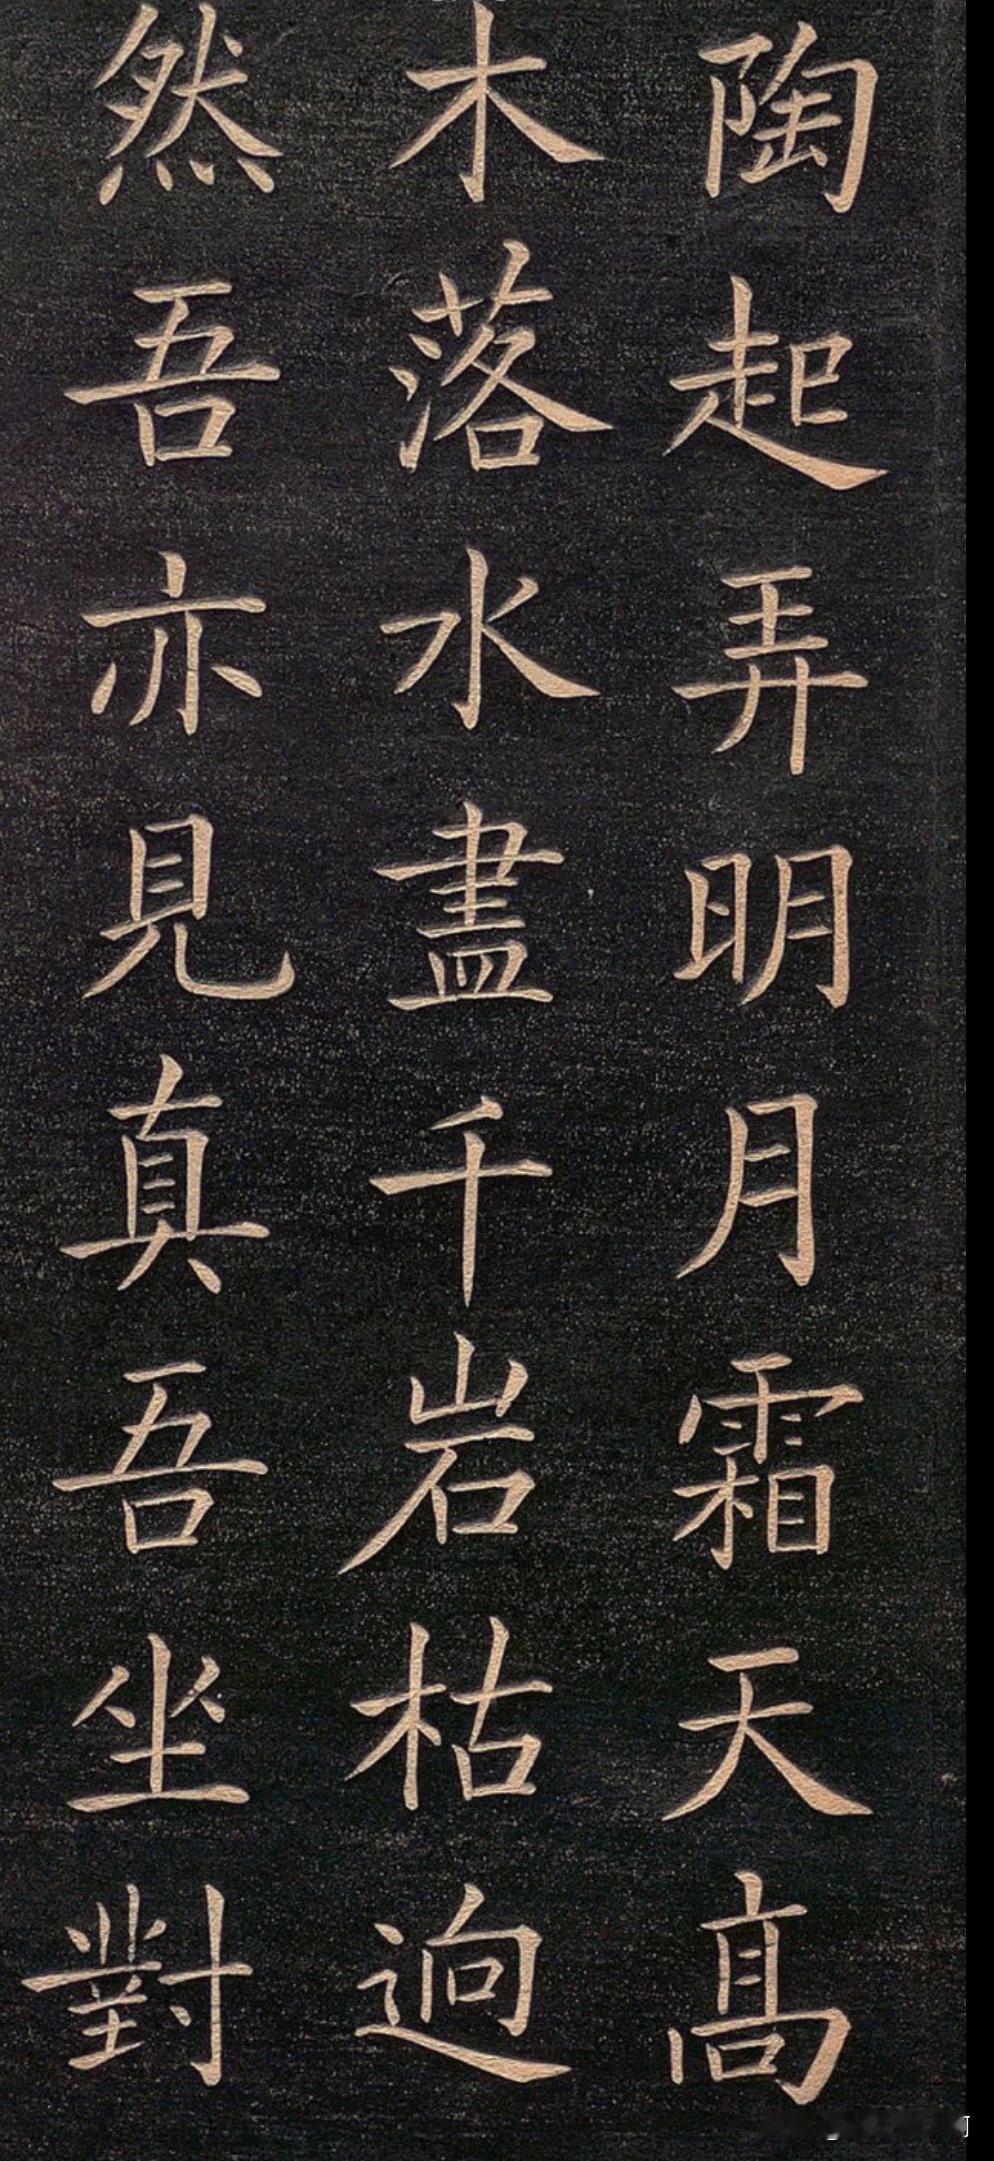 陶起弄明月霜天高
木落水盡千岩枯迥
然吾亦見真吾坐對